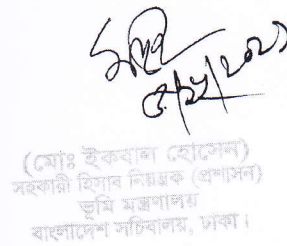 (মোঃ ইকবাল হোসেন)
সহকারী হিসাব নিয়ন্ত্রক (প্রশাসন)
ভূমি মন্ত্রণালয়
বাংলাদেশ সচিবালয়, ঢাকা।